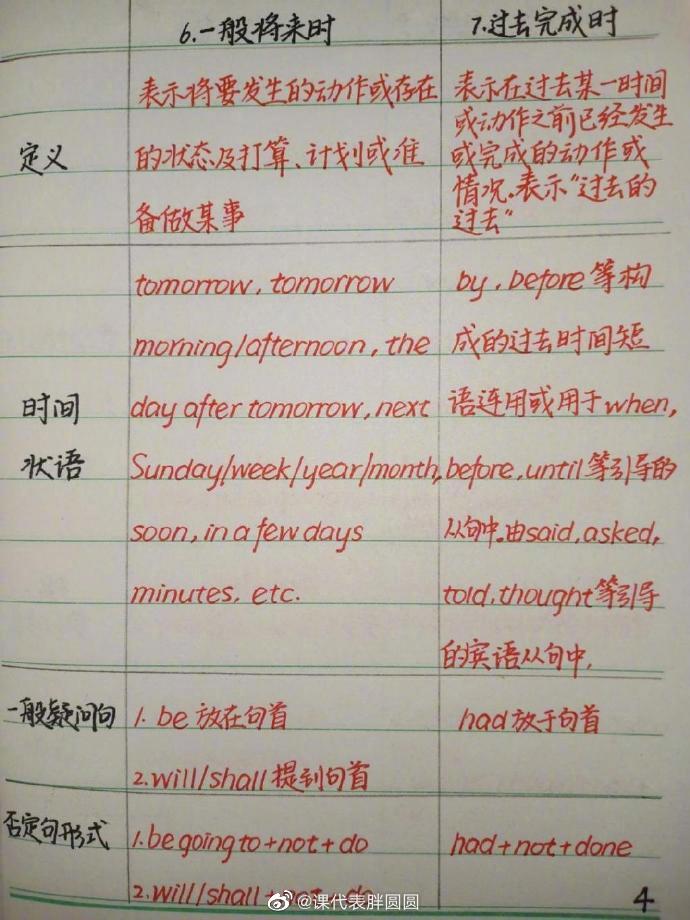 6.一般将来时
7.过去完成时
定义
表示将要发生的动作或存在
的状态及打算、计划或准
备做某事
表示在过去某一时间
或动作之前已经发生
或完成的动作或
情况.表示"过去的
过去"
时间
状语
tomorrow, tomorrow
morning/afternoon, the
day after tomorrow, next
Sunday/week/year/month,
soon, in a few days
minutes, etc.
by, before等构
成的过去时间短
语连用或用于when,
before, until等引导的
从句中.由said, asked,
told, thought等引导
的宾语从句中,
一般疑问句
1. be 放在句首
2.will/shall 提到句首
had 放于句首
否定句形式
1.be going to+not+do
2.will/shall+not+do
had+not+done
@课代表胖圆圆
4